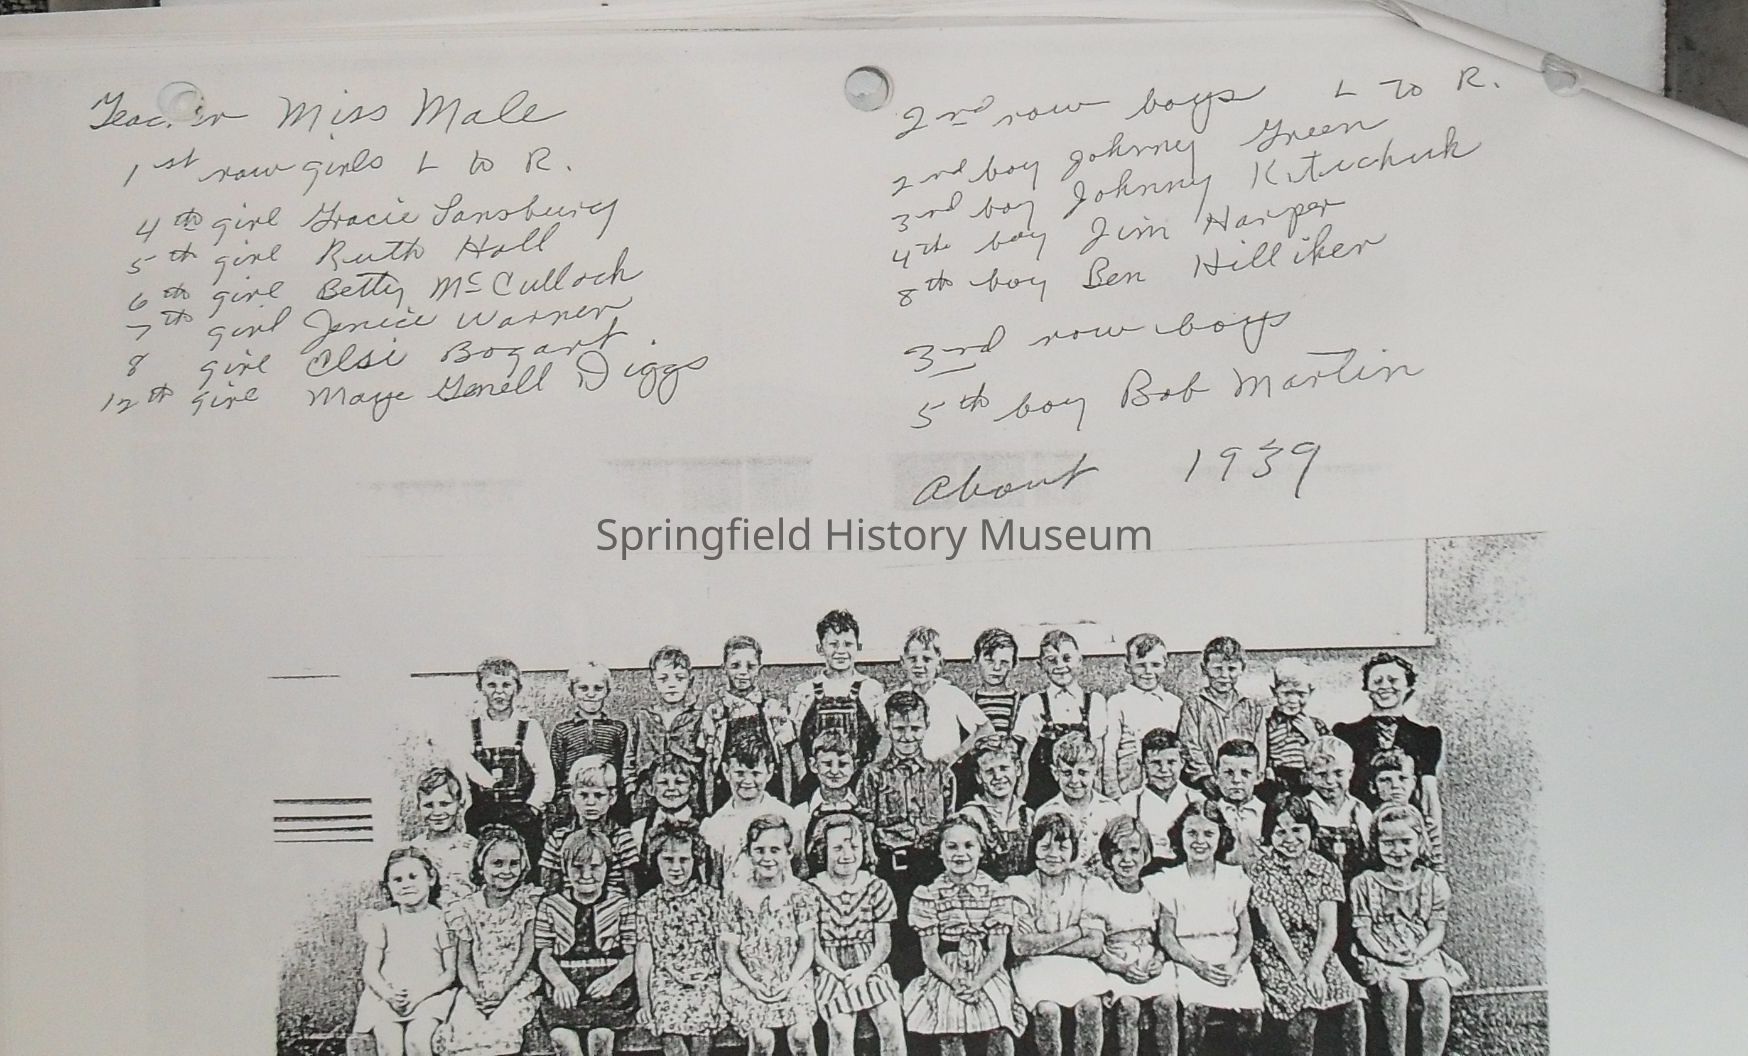 Teacher Miss Male
1st row girls L to R.
4th girl Gracie Lansbury
5th girl Ruth Hall
6th girl Betty McCulloch
7th girl Jenice Warner
8 girl Elsi Bogart
12th girl Maye Genell Diggs
2nd row boys L to R.
2nd boy Johnny Green
3rd boy Johnny
4th boy Jim Harper
8th boy Ben Hilliker
3rd row boys
5th boy Bob Martin
About 1939
Springfield History Museum